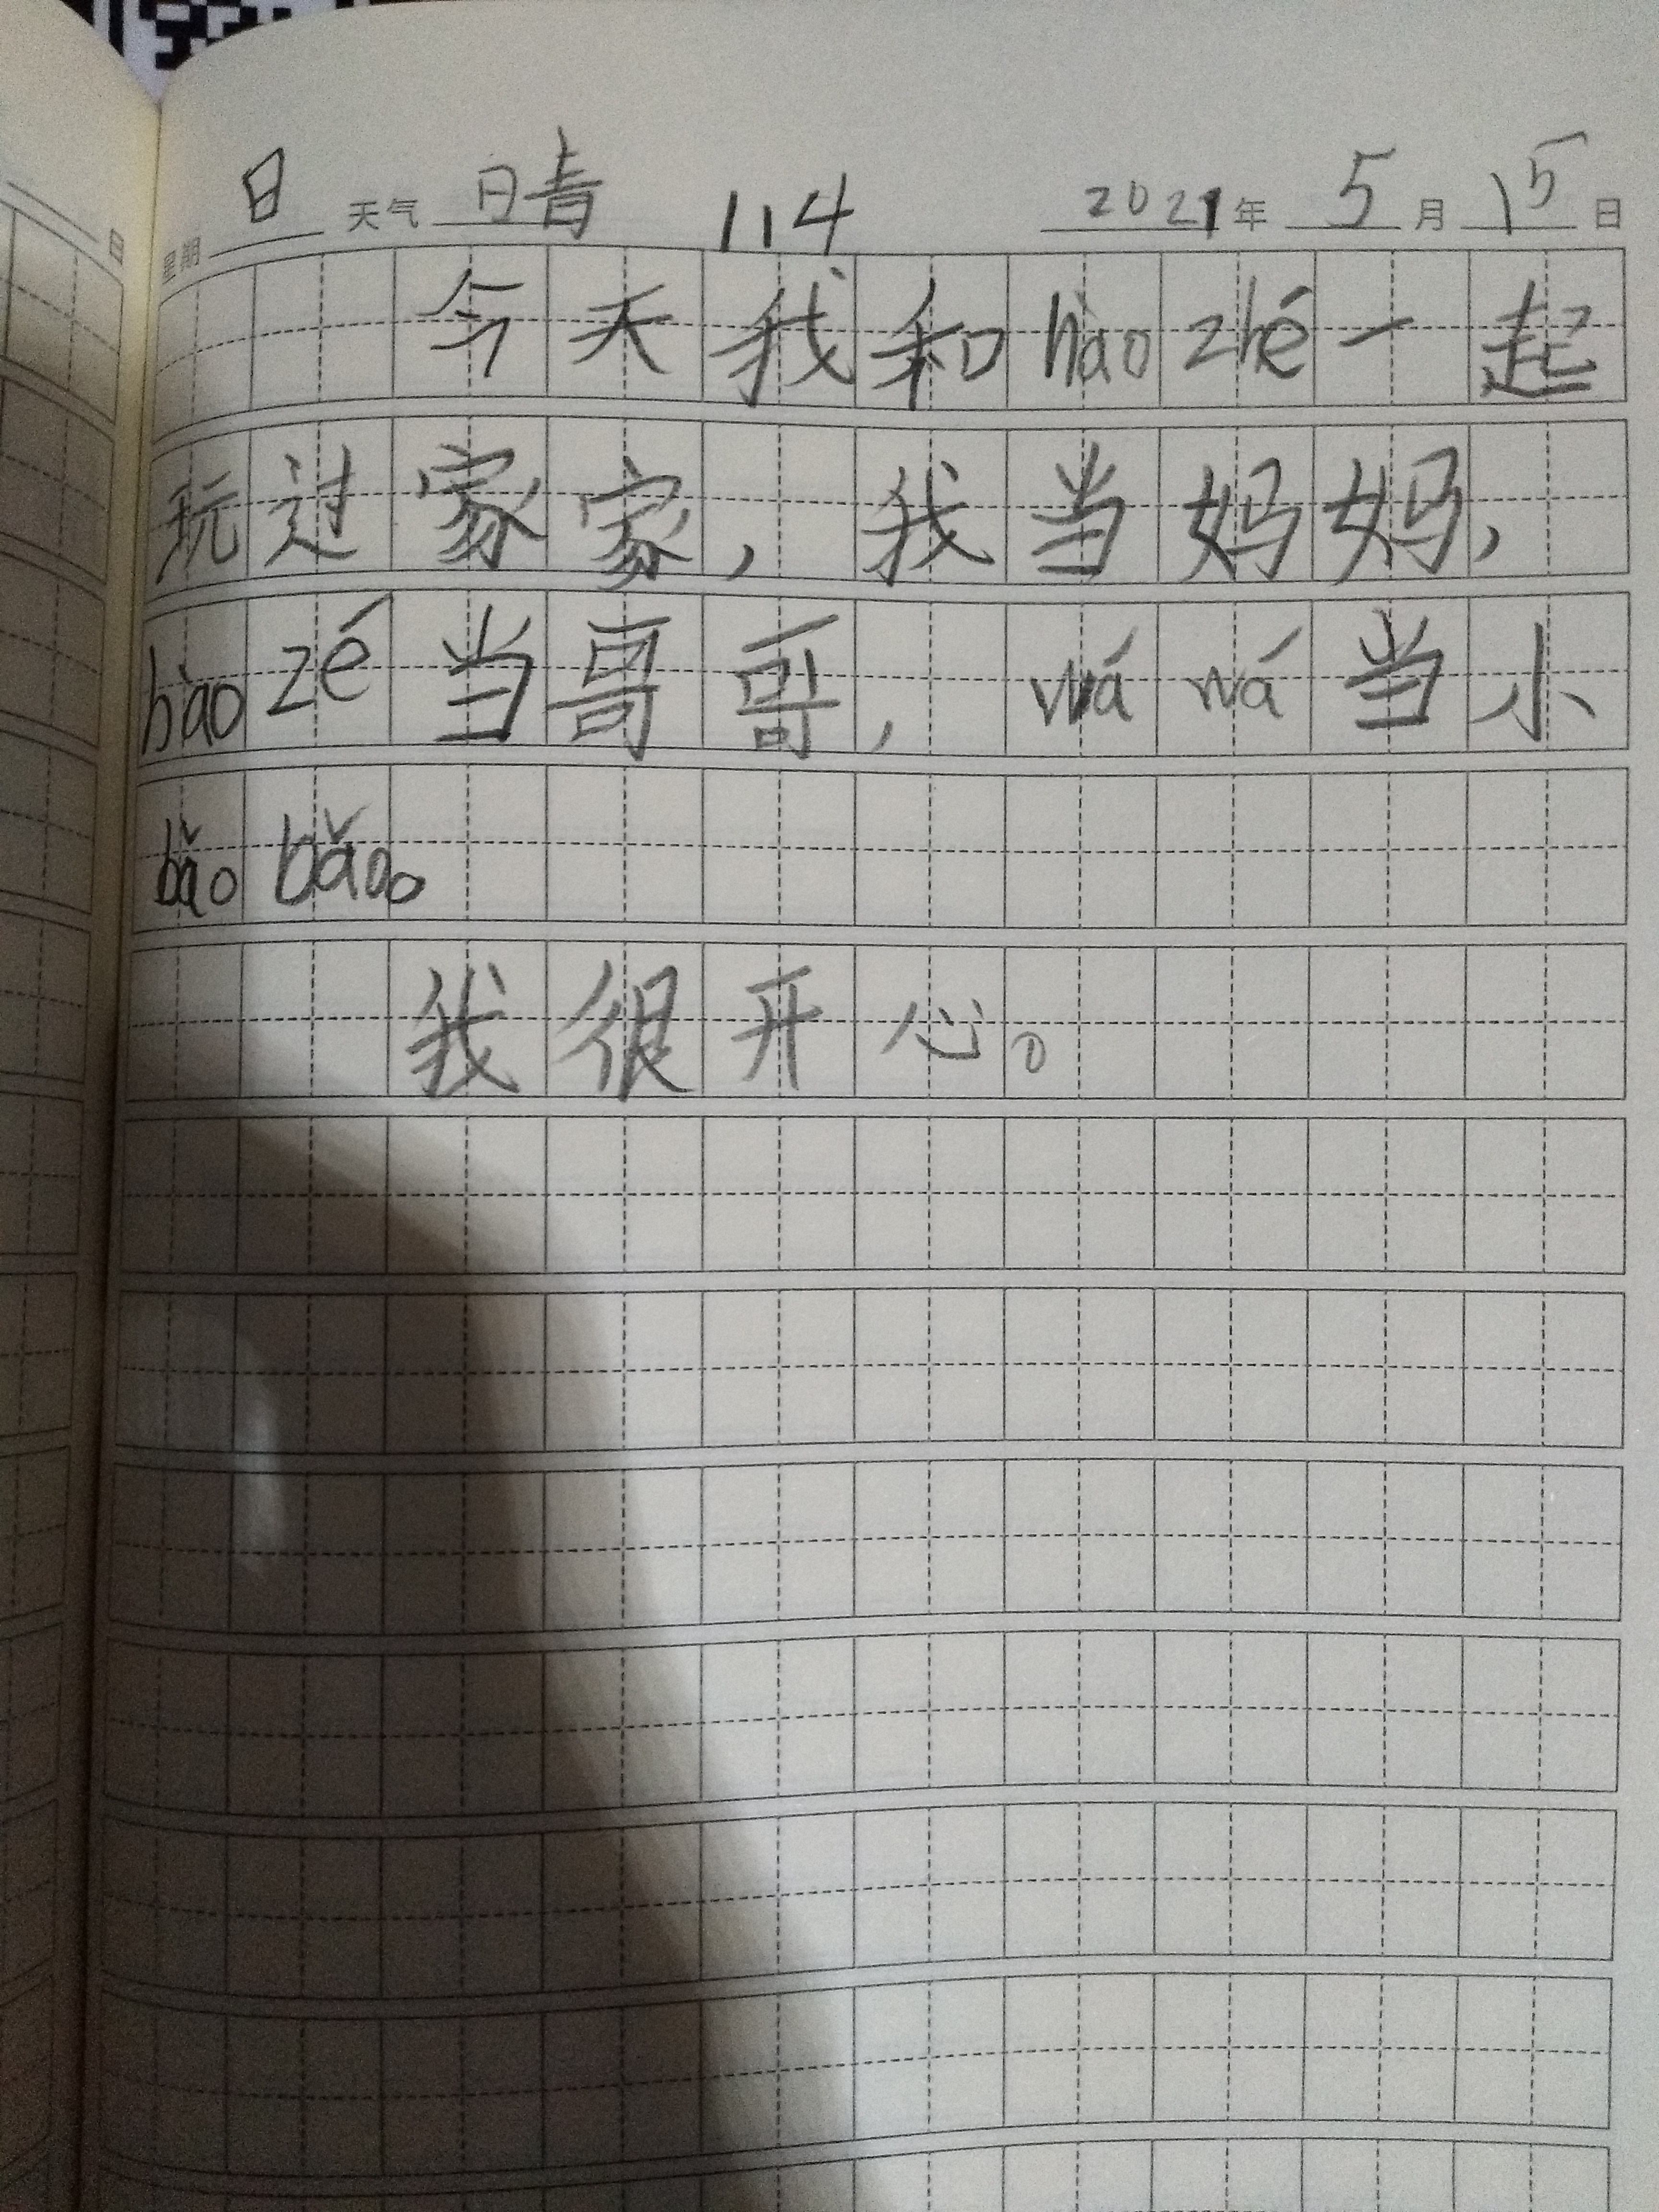 星期 日 天气 晴 114 2021 年 5 月 15 日
今天我和 hào zhé 一起
玩过家家，我当妈妈，
hào zé 当哥哥， wá wá 当小
bǎo bǎo。
我很开心。